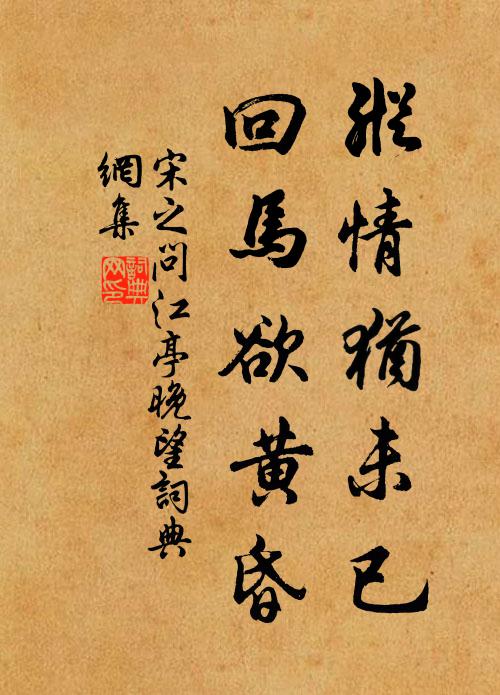 縱情猶未已
回馬欲黃昏
宋之問江亭晚望詞典
網集
詞典
网印